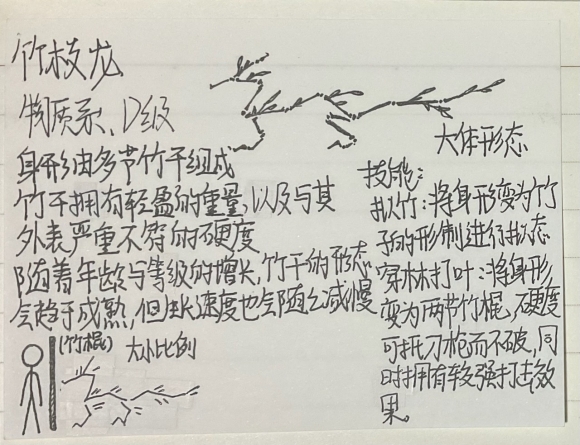 竹枝龙
物质系、D级
身形由多节竹干组成
竹干拥有轻盈的重量,以及与其
外表严重不符的硬度
随着年龄与等级的增长,竹干的形态
会趋于成熟,但生长速度也会随之减慢
(竹棍) 大小比例
大体形态
技能:
拟竹:将身形变为竹
子的形制进行拟态
穿林打叶:将身形
变为两节竹棍、硬度
可抵刀枪而不破,同
时拥有较强打击效
果。